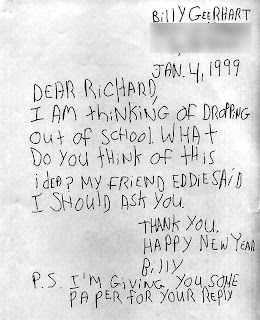 BiLLY GEERHART
JAN. 4, 1999
DEAR RiCHARD,
I AM thiNKiNG OF DROPPiNG
Out OF SCHOOL. WHAT
DO YOU thiNK OF tHiS
iDEA? MY FRiEND EDDiE SAiD
I SHOULD ASK YOU.
THANK YOU.
HAPPY NEW YEAR
BiLLY
P.S. I'M GiViNG YOU SOME
PAPER FOR YOUR REPLY